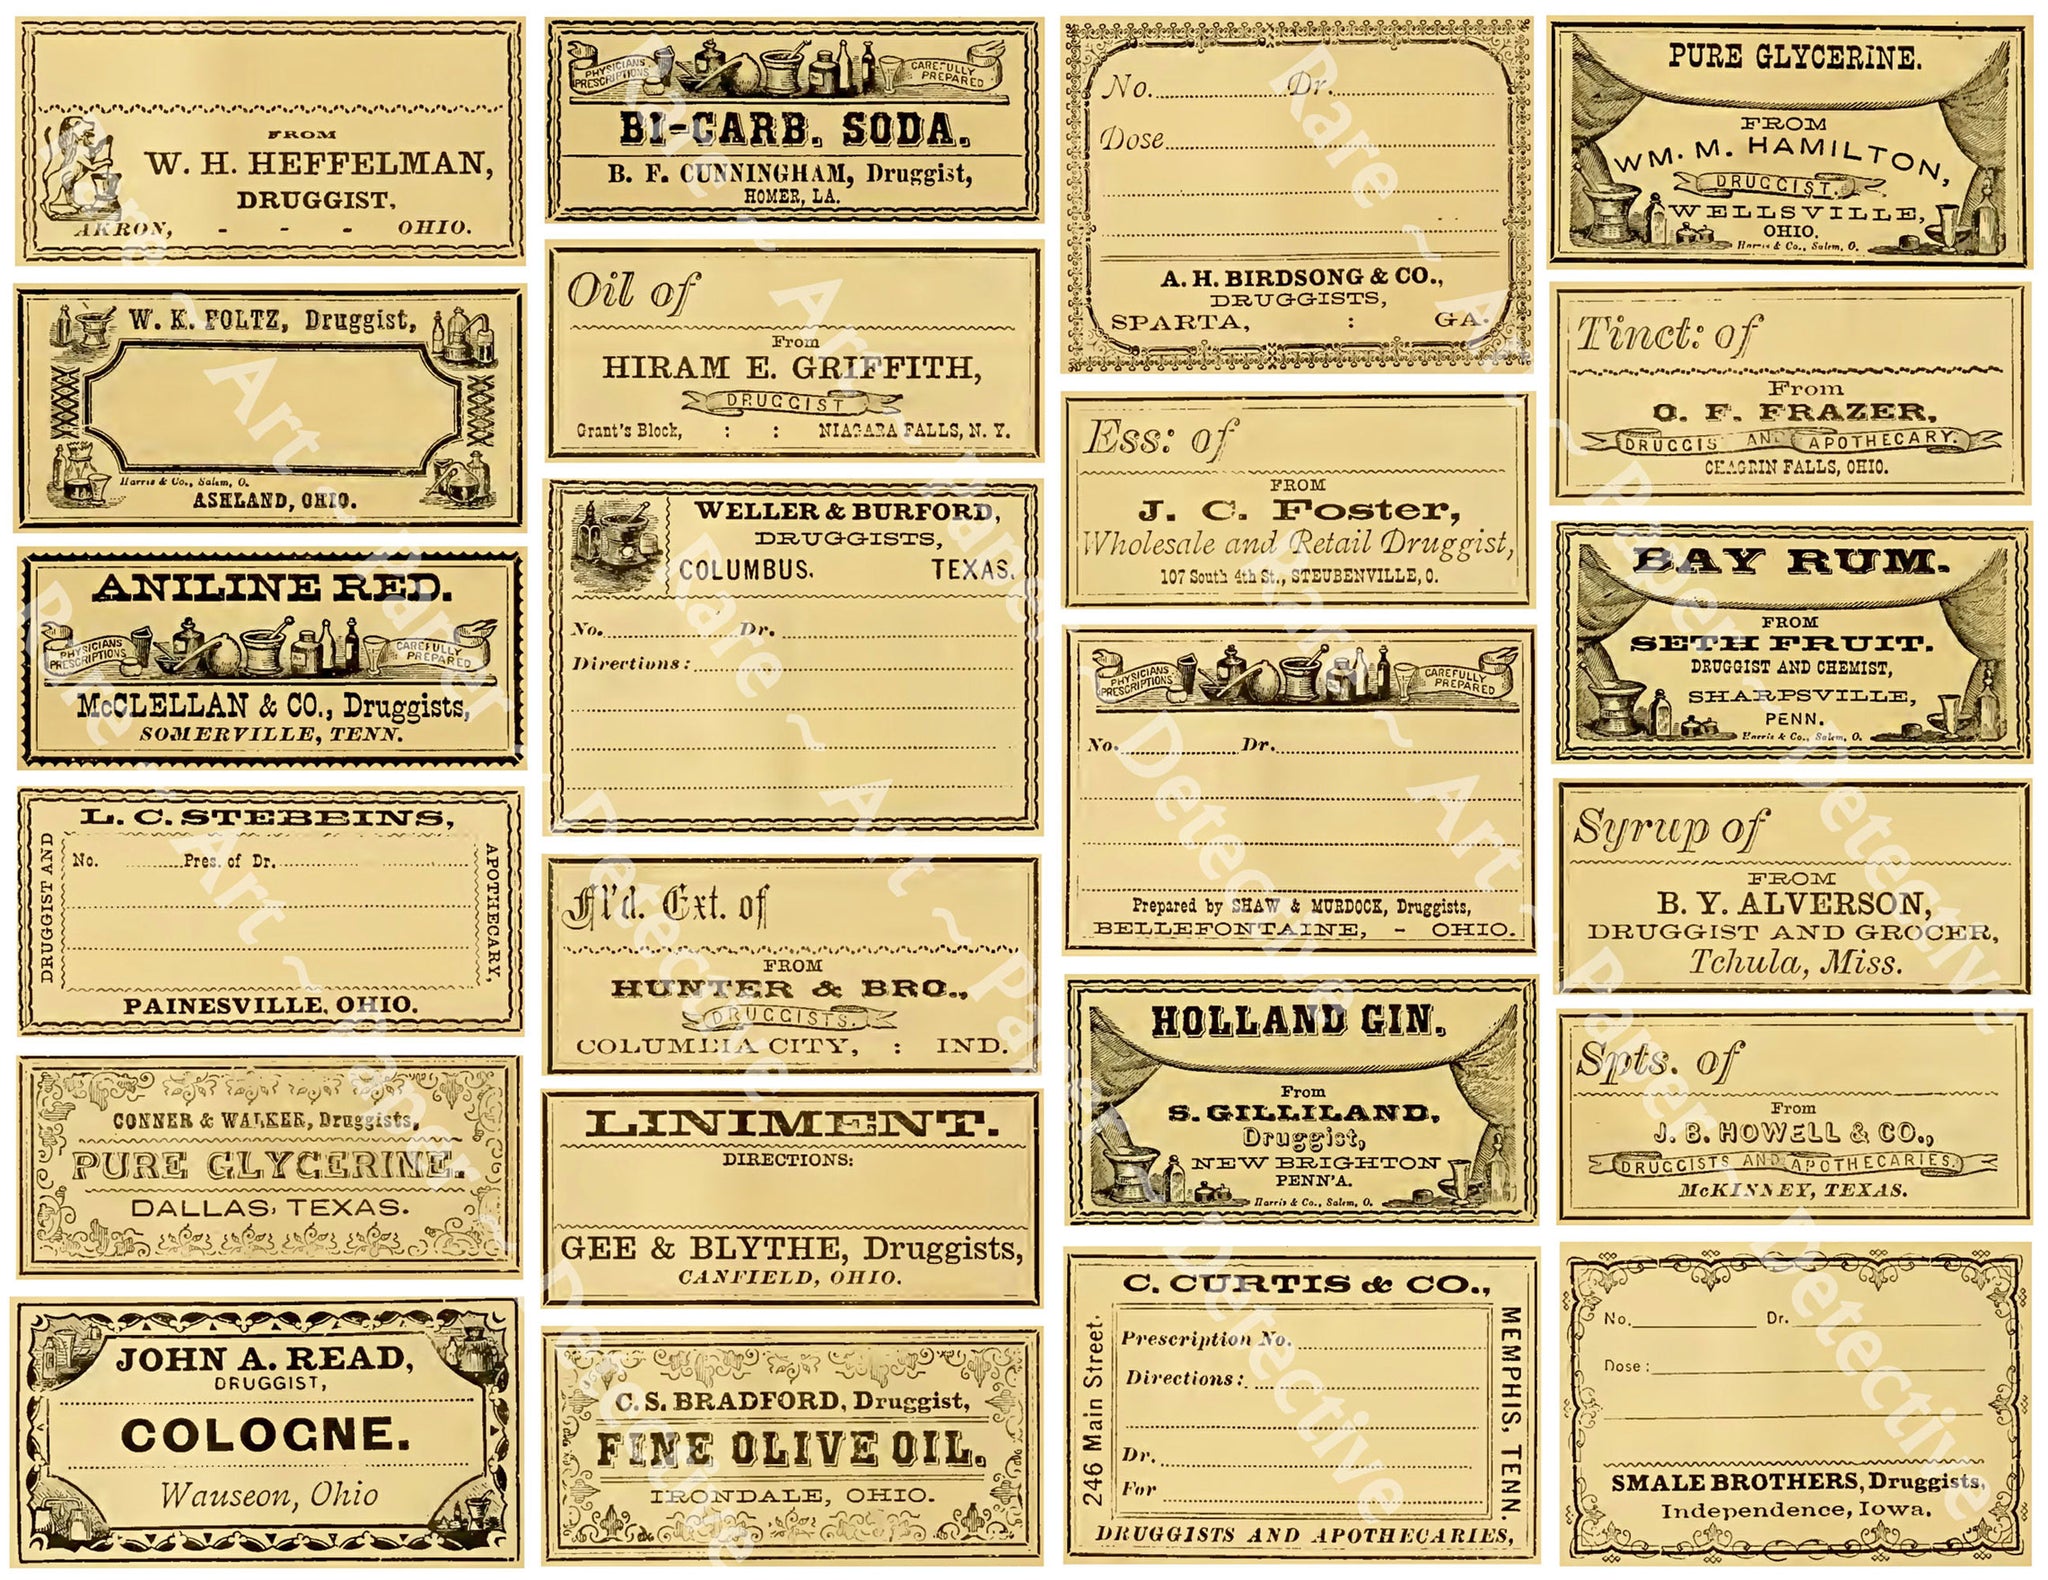 FROM
W. H. HEFFELMAN,
DRUGGIST,
AKRON, - - - OHIO.
W. K. FOLTZ, Druggist,
Harris & Co., Salem, O.
ASHLAND, OHIO.
ANILINE RED.
PHYSICIANS PRESCRIPTIONS CAREFULLY PREPARED
McCLELLAN & CO., Druggists,
SOMERVILLE, TENN.
L. C. STEBBINS,
DRUGGIST AND
No. Pres. of Dr.
APOTHECARY,
PAINESVILLE, OHIO.
CONNER & WALKER, Druggists,
PURE GLYCERINE.
DALLAS, TEXAS.
JOHN A. READ,
DRUGGIST,
COLOGNE.
Wauseon, Ohio
PHYSICIANS PRESCRIPTIONS CAREFULLY PREPARED
BI-CARB. SODA.
B. F. CUNNINGHAM, Druggist,
HOMER, LA.
Oil of
From
HIRAM E. GRIFFITH,
DRUGGIST
Grant's Block, : : NIAGARA FALLS, N. Y.
WELLER & BURFORD,
DRUGGISTS,
COLUMBUS. TEXAS.
No. Dr.
Directions:
Fl'd. Ext. of
FROM
HUNTER & BRO.,
DRUGGISTS.
COLUMBIA CITY, : IND.
LINIMENT.
DIRECTIONS:
GEE & BLYTHE, Druggists,
CANFIELD, OHIO.
C. S. BRADFORD, Druggist,
FINE OLIVE OIL.
IRONDALE, OHIO.
No. Dr.
Dose
A. H. BIRDSONG & CO.,
DRUGGISTS,
SPARTA, : GA.
Ess: of
FROM
J. C. Foster,
Wholesale and Retail Druggist,
107 South 4th St., STEUBENVILLE, O.
PHYSICIANS PRESCRIPTIONS CAREFULLY PREPARED
No. Dr.
Prepared by SHAW & MURDOCK, Druggists,
BELLEFONTAINE, - OHIO.
HOLLAND GIN.
From
S. GILLILAND,
Druggist,
NEW BRIGHTON
PENN'A.
Harris & Co., Salem, O.
C. CURTIS & CO.,
246 Main Street.
Prescription No.
Directions:
Dr.
For
MEMPHIS, TENN.
DRUGGISTS AND APOTHECARIES,
PURE GLYCERINE.
FROM
WM. M. HAMILTON,
DRUGGIST.
WELLSVILLE,
OHIO.
Harris & Co., Salem, O.
Tinct: of
From
O. F. FRAZER,
DRUGGIST AND APOTHECARY.
CHAGRIN FALLS, OHIO.
BAY RUM.
FROM
SETH FRUIT.
DRUGGIST AND CHEMIST,
SHARPSVILLE,
PENN.
Harris & Co., Salem, O.
Syrup of
FROM
B. Y. ALVERSON,
DRUGGIST AND GROCER,
Tchula, Miss.
Spts. of
From
J. B. HOWELL & CO.,
DRUGGISTS AND APOTHECARIES.
McKINNEY, TEXAS.
No. Dr.
Dose:
SMALE BROTHERS, Druggists,
Independence, Iowa.
Rare ~ Art ~ Paper ~ Detective
Rare ~ Art ~ Paper ~ Detective
Rare ~ Art ~ Paper ~ Detective
Rare ~ Art ~ Paper ~ Detective
Rare ~ Art ~ Paper ~ Detective